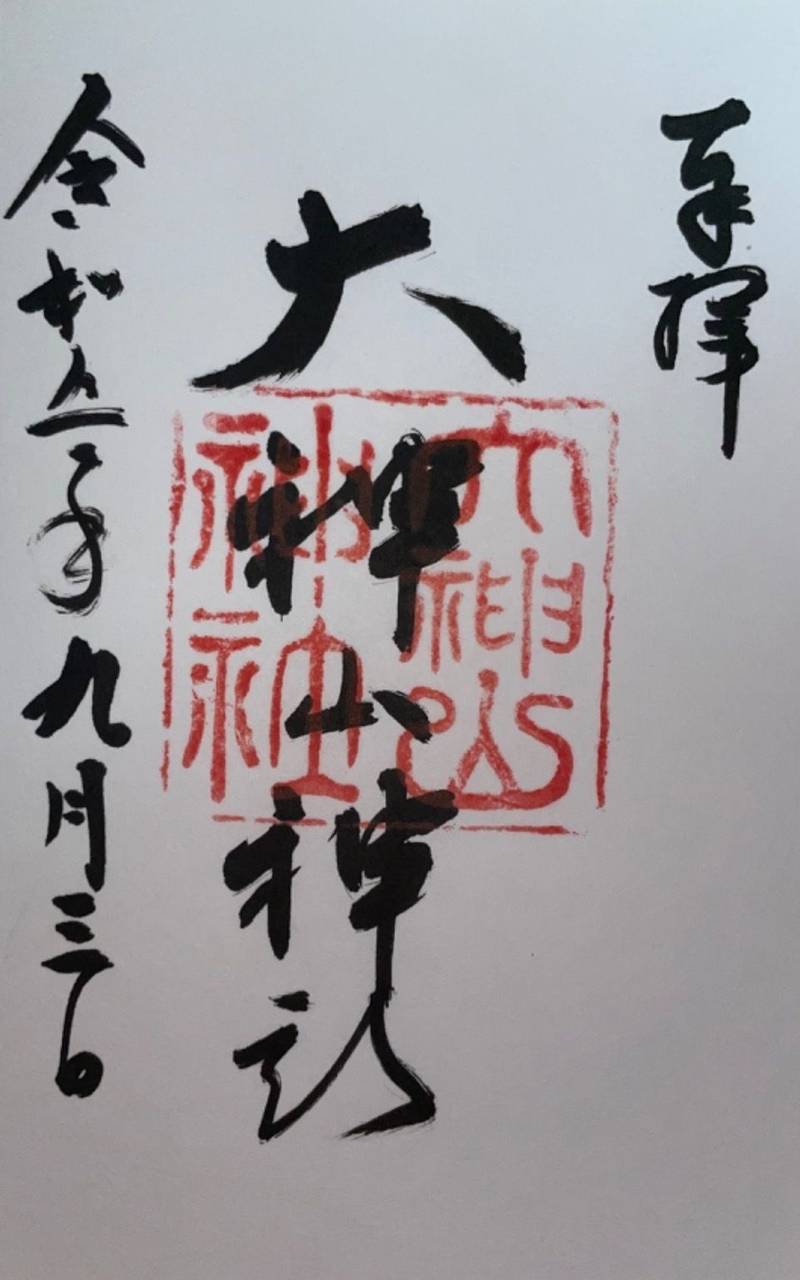 奉拝
大神山神社
大神山
神社
令和五年九月三日